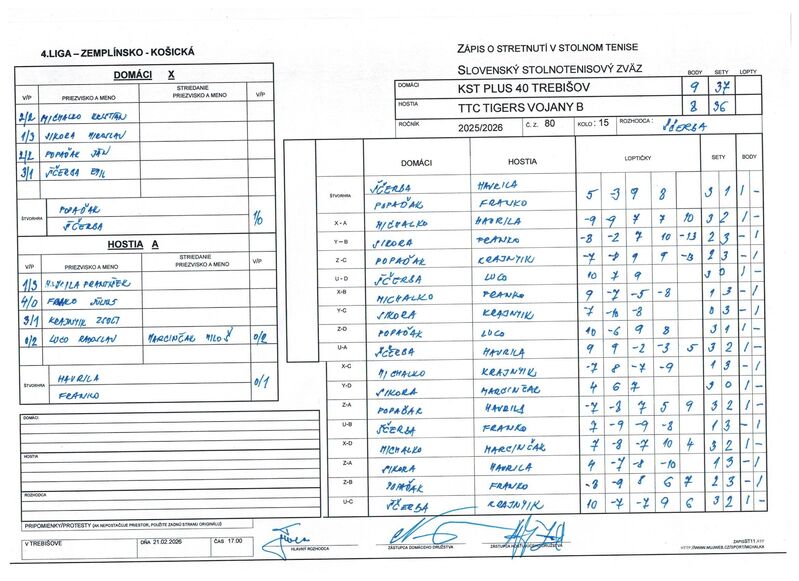 4.LIGA – ZEMPLÍNSKO - KOŠICKÁ
DOMÁCI X
V/P PRIEZVISKO A MENO STRIEDANIE PRIEZVISKO A MENO V/P
2/2 MICHALKO KRISTIÁN
1/3 SIKORA MIROSLAV
2/2 POPAĎAK JÁN
3/1 ŠČERBA EMIL
ŠTVORHRA POPAĎAK ŠČERBA 1/0
HOSTIA A
V/P PRIEZVISKO A MENO STRIEDANIE PRIEZVISKO A MENO V/P
1/3 HAVRILA FRANTIŠEK
4/0 FRANKO JÚLIUS
3/1 KRAJNYIK ZSOLT
0/2 LUCO RADOSLAV MARCINČAK MILOŠ 0/2
ŠTVORHRA HAVRILA FRANKO 0/1
DOMÁCI:
HOSTIA
ROZHODCA
PRIPOMIENKY/PROTESTY (AK NEPOSTAČUJE PRIESTOR, POUŽITE ZADNÚ STRANU ORIGINÁLU)
V TREBIŠOVE DŇA 21.02.2026 ČAS 17.00
ZÁPIS O STRETNUTÍ V STOLNOM TENISE
SLOVENSKÝ STOLNOTENISOVÝ ZVÄZ
BODY SETY LOPTY
DOMÁCI KST PLUS 40 TREBIŠOV 9 37
HOSTIA TTC TIGERS VOJANY B 8 36
ROČNÍK 2025/2026 Č. Z. 80 KOLO : 15 ROZHODCA : ŠČERBA
DOMÁCI HOSTIA LOPTIČKY SETY BODY
ŠTVORHRA ŠČERBA HAVRILA
POPAĎAK FRANKO 5 -3 9 8 3 1 1 -
X - A MICHALKO HAVRILA -9 -9 7 7 10 3 2 1 -
Y – B SIKORA FRANKO -8 -2 7 10 -13 2 3 - 1
Z -C POPAĎAK KRAJNYIK -7 9 9 2 3 - 1
U - D ŠČERBA LUCO 10 7 9 3 0 1 -
X-B MICHALKO FRANKO 9 -7 -5 -8 1 3 - 1
Y-C SIKORA KRAJNYIK -7 -10 -8 0 3 - 1
Z-D POPAĎAK LUCO 10 -6 9 8 3 1 1 -
U-A ŠČERBA HAVRILA 9 9 -2 -3 5 3 2 1 -
X-C MICHALKO KRAJNYIK -7 8 -7 -9 1 3 - 1
Y-D SIKORA MARCINČAK 4 6 7 3 0 1 -
Z-A POPAĎAK HAVRILA -7 -8 7 5 9 3 2 1 -
U-B ŠČERBA FRANKO 7 -9 -9 -8 1 3 - 1
X-D MICHALKO MARCINČAK 7 -8 -7 10 4 3 2 1 -
Z-A SIKORA HAVRILA 4 -7 -8 -10 1 3 - 1
Z-B POPAĎAK FRANKO -8 -9 8 6 7 2 3 - 1
U-C ŠČERBA KRAJNYIK 10 -7 -7 9 6 3 2 1 -
HLAVNÝ ROZHODCA
ZÁSTUPCA DOMÁCEHO DRUŽSTVA
ZÁSTUPCA HOSŤUJÚCEHO DRUŽSTVA
ZAPISST11.XTF
HTTP://WWW.MUJWEB.CZ/SPORT/MICHALKA